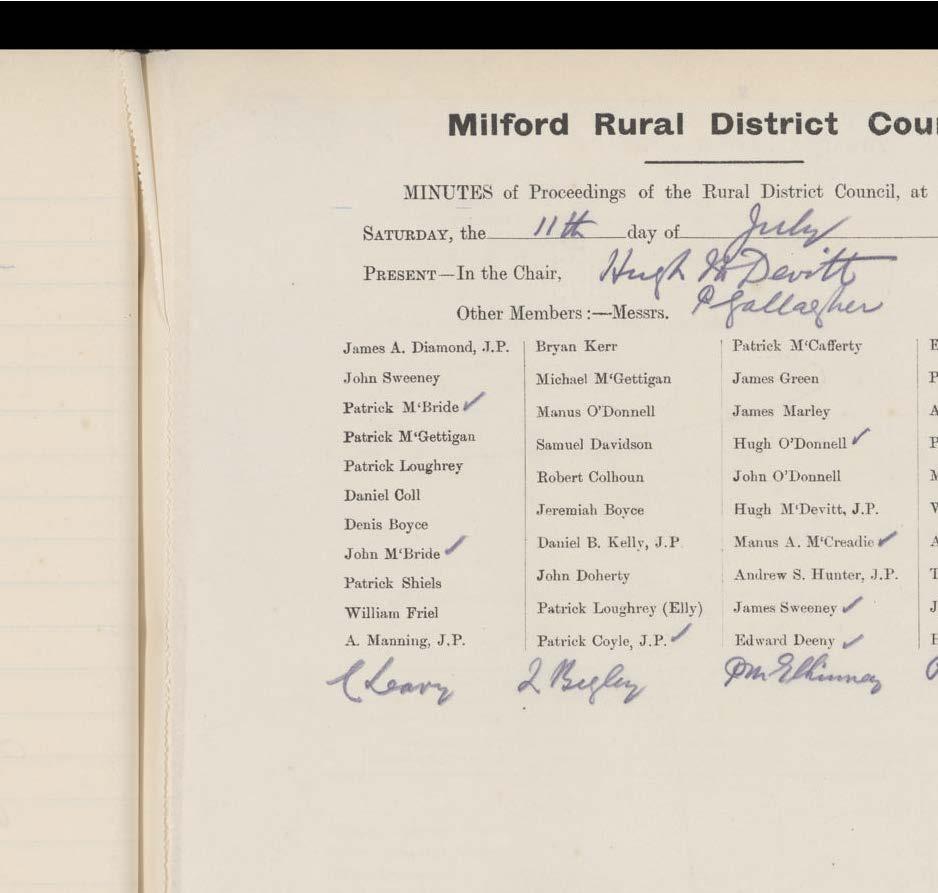 Milford Rural District Cou
MINUTES of Proceedings of the Rural District Council, at
SATURDAY, the 11th day of July
PRESENT—In the Chair, Hugh McDevitt
Other Members :—Messrs. P Gallagher
James A. Diamond, J.P.
John Sweeney
Patrick M‘Bride ✓
Patrick M‘Gettigan
Patrick Loughrey
Daniel Coll
Denis Boyce
John M‘Bride ✓
Patrick Shiels
William Friel
A. Manning, J.P.
Leavy
Bryan Kerr
Michael M‘Gettigan
Manus O’Donnell
Samuel Davidson
Robert Colhoun
Jeremiah Boyce
Daniel B. Kelly, J.P.
John Doherty
Patrick Loughrey (Elly)
Patrick Coyle, J.P. ✓
Begley
Patrick M‘Cafferty
James Green
James Marley
Hugh O’Donnell ✓
John O’Donnell
Hugh M‘Devitt, J.P.
Manus A. M‘Creadie ✓
Andrew S. Hunter, J.P.
James Sweeney ✓
Edward Deeny ✓
P McElhinney
E
P
A
P
M
V
A
T
J